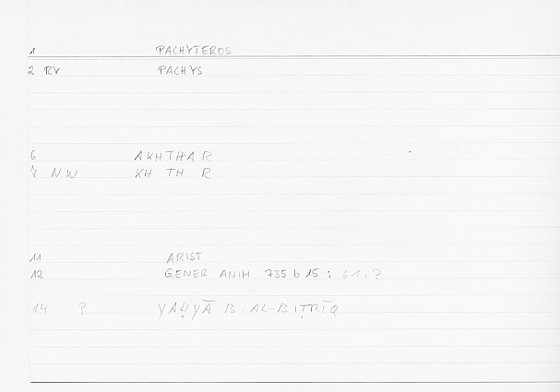 1 PACHYTEROS
2 RV PACHYS
6 AKHTHAR
7 NW KH TH R
11 ARIST
12 GENER ANIM 735 b 15 : 61.2
14 ? YAḤYĀ B. AL-BIṬRĪQ